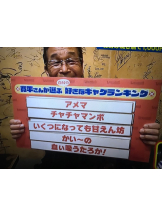 寛平さんが選ぶ 好きなギャグランキング
アメマ
チャチャマンボ
いくつになっても甘えん坊
かい〜の
血ぃ吸うたろか!